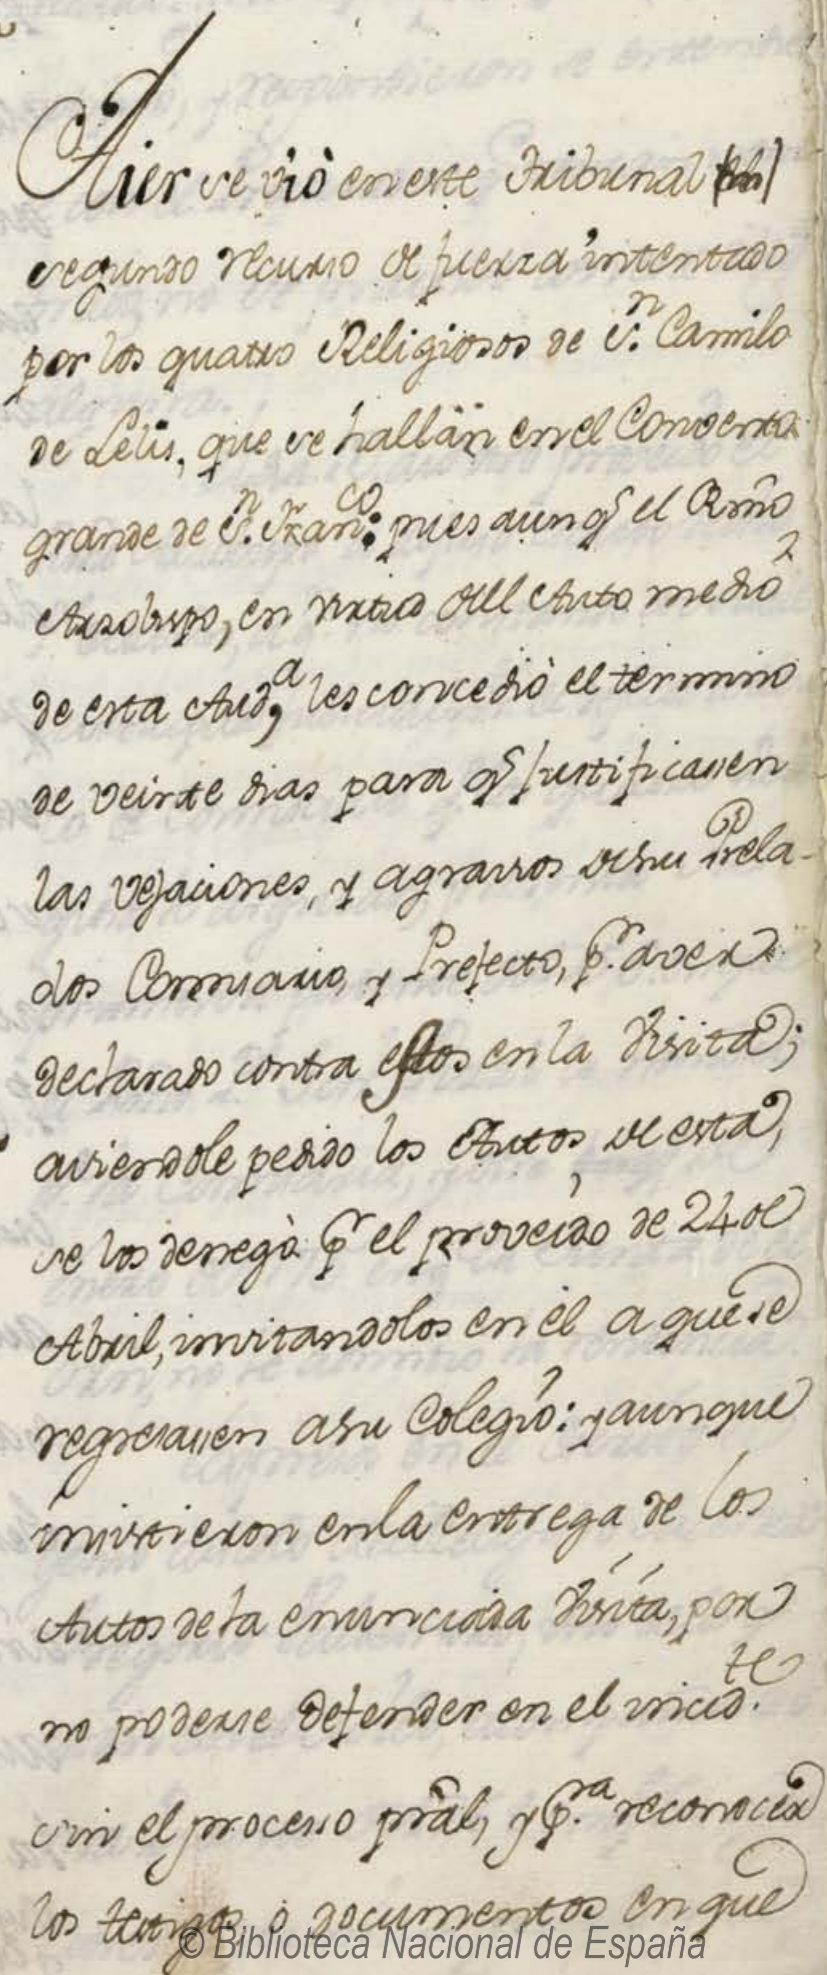 Aier se viò en este Tribunal
segundo recurso de fuerza intentado
por los quatro Religiosos de S.n Camilo
de Lelis, que se hallan en el Convento
grande de S.n Fran.co: pues aunq.e el Rmō
Arzobispo, en virtud del Auto medio
de esta Aud.a les concediò el termino
de veinte dias para q.e justificassen
las vejaciones, y agravios de su Prela-
dos Comisario, y Prefecto, p.r aver
declarado contra estos en la Visita;
aviendole pedido los Autos de esta,
se los denegò p.r el proveido de 24 de
Abril, invitandolos en èl a que se
regresassen a su Colegio: y aunque
insistieron en la entrega de los
Autos de la enunciada Visita, por
no poderse defender en el incid.te
sin el processo prāl, y p.ra reconocer
los testigos ò documentos en que
© Biblioteca Nacional de España